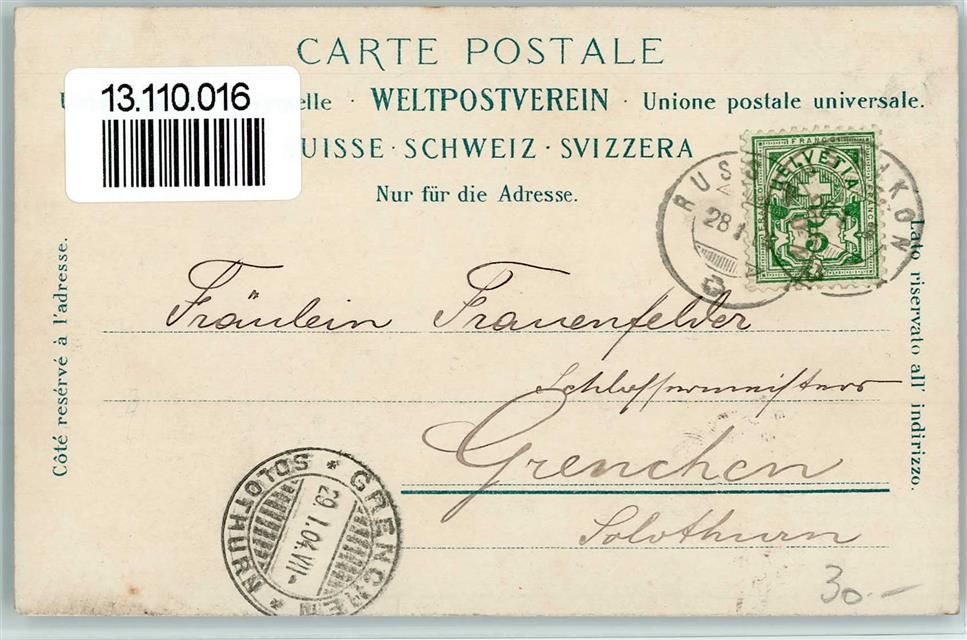 CARTE POSTALE
13.110.016
elle · WELTPOSTVEREIN · Unione postale universale.
UISSE · SCHWEIZ · SVIZZERA
Nur für die Adresse.
HELVETIA
FRANCO
5
RUS IKON
28
Côté resérvé à l'adresse.
Lato riservato all' indirizzo.
Fräulein Frauenfelder
Schlossermeisters
Grenchen
Solothurn
GRENCHEN
SOLOTHURN
29.I.04.VII
30.-